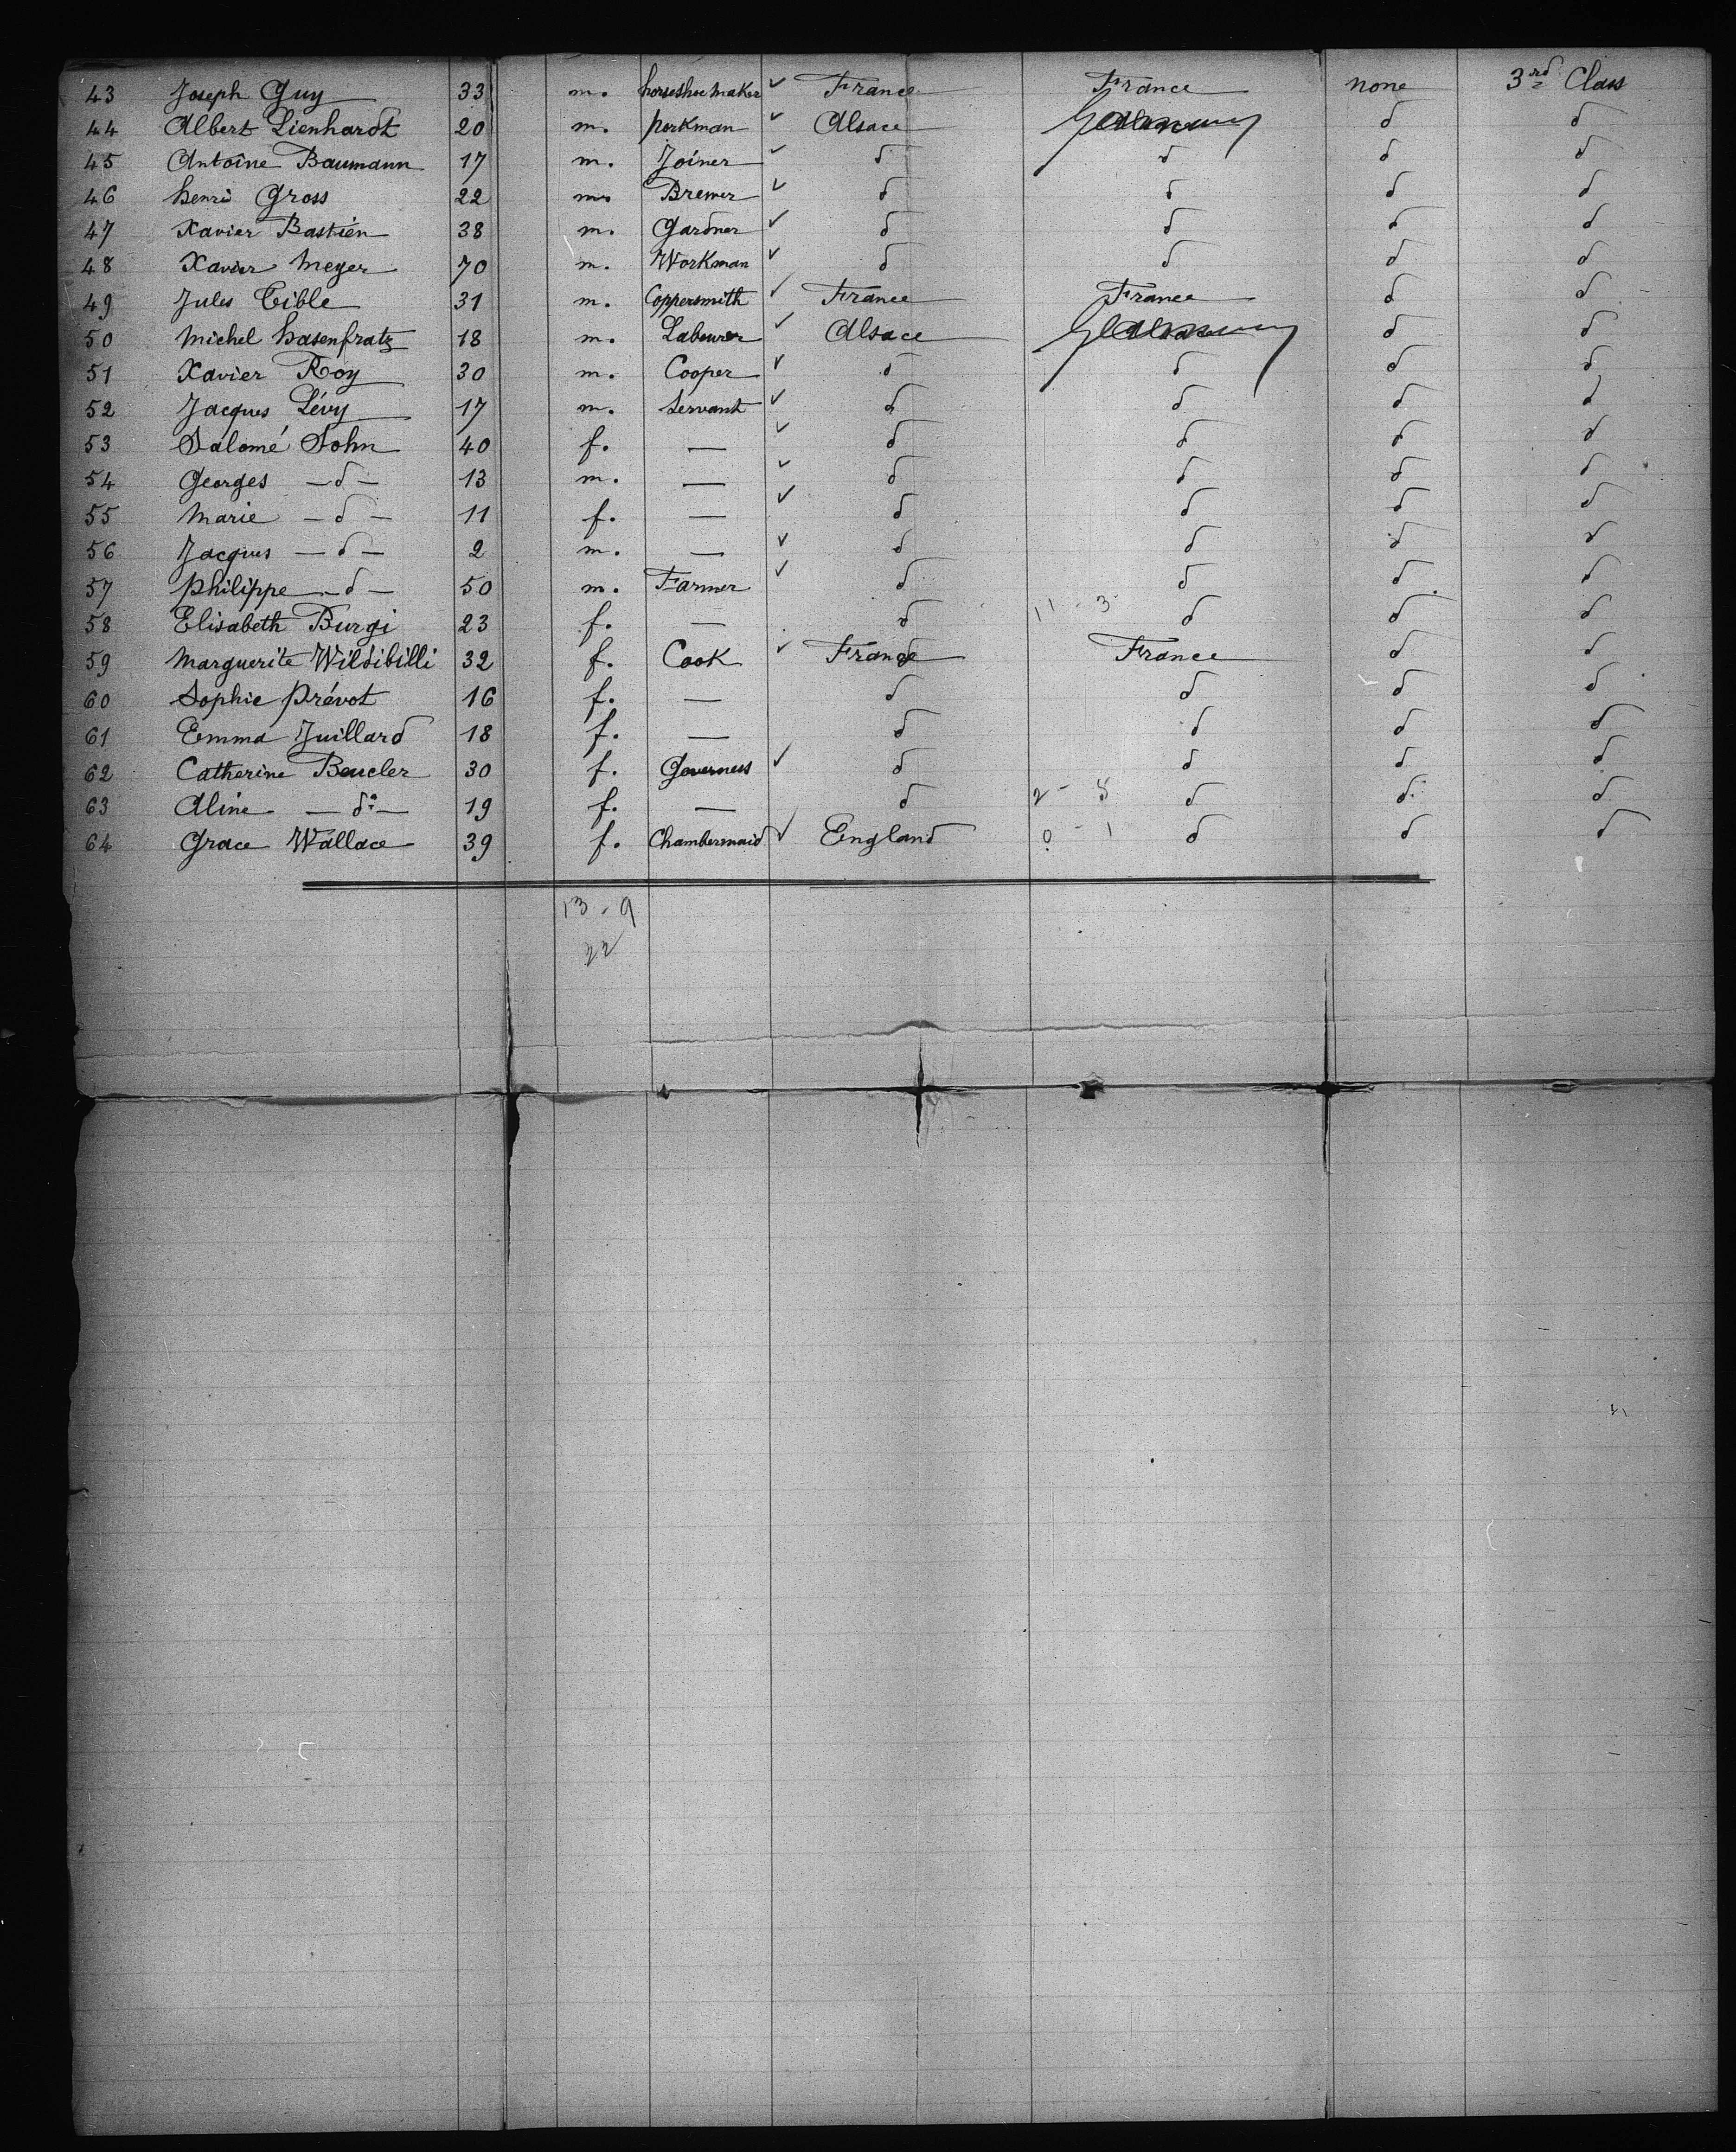 43 Joseph Guy 33 m. horseshoemaker ✓ France France none 3rd Class
44 Albert Lienhardt 20 m. porkman ✓ Alsace Germany d d
45 Antoine Baumann 17 m. Joiner ✓ d d d d
46 Henri Gross 22 m. Brewer ✓ d d d d
47 Xavier Bastien 38 m. Gardner ✓ d d d d
48 Xavier Meyer 70 m. Workman ✓ d d d d
49 Jules Tible 31 m. Coppersmith ✓ France France d d
50 Michel Hasenfratz 18 m. Labourer ✓ Alsace Germany d d
51 Xavier Roy 30 m. Cooper ✓ d d d d
52 Jacques Lévy 17 m. Servant ✓ d d d d
53 Salomé Sohn 40 f. — ✓ d d d d
54 Georges — d — 13 m. — ✓ d d d d
55 Marie — d — 11 f. — ✓ d d d d
56 Jacques — d — 2 m. — ✓ d d d d
57 Philippe — d — 50 m. Farmer ✓ d d d d
58 Elisabeth Burgi 23 f. — d 11 - 3 d d d
59 Marguerite Wildibilli 32 f. Cook ✓ France France d d
60 Sophie Prévot 16 f. — d d d d
61 Emma Juillard 18 f. — d d d d
62 Catherine Beucler 30 f. Governess ✓ d d d d
63 Aline — do — 19 f. — d 2 - 5 d d d
64 Grace Wallace 39 f. Chambermaid ✓ England 0 - 1 d d d
13 - 9
22